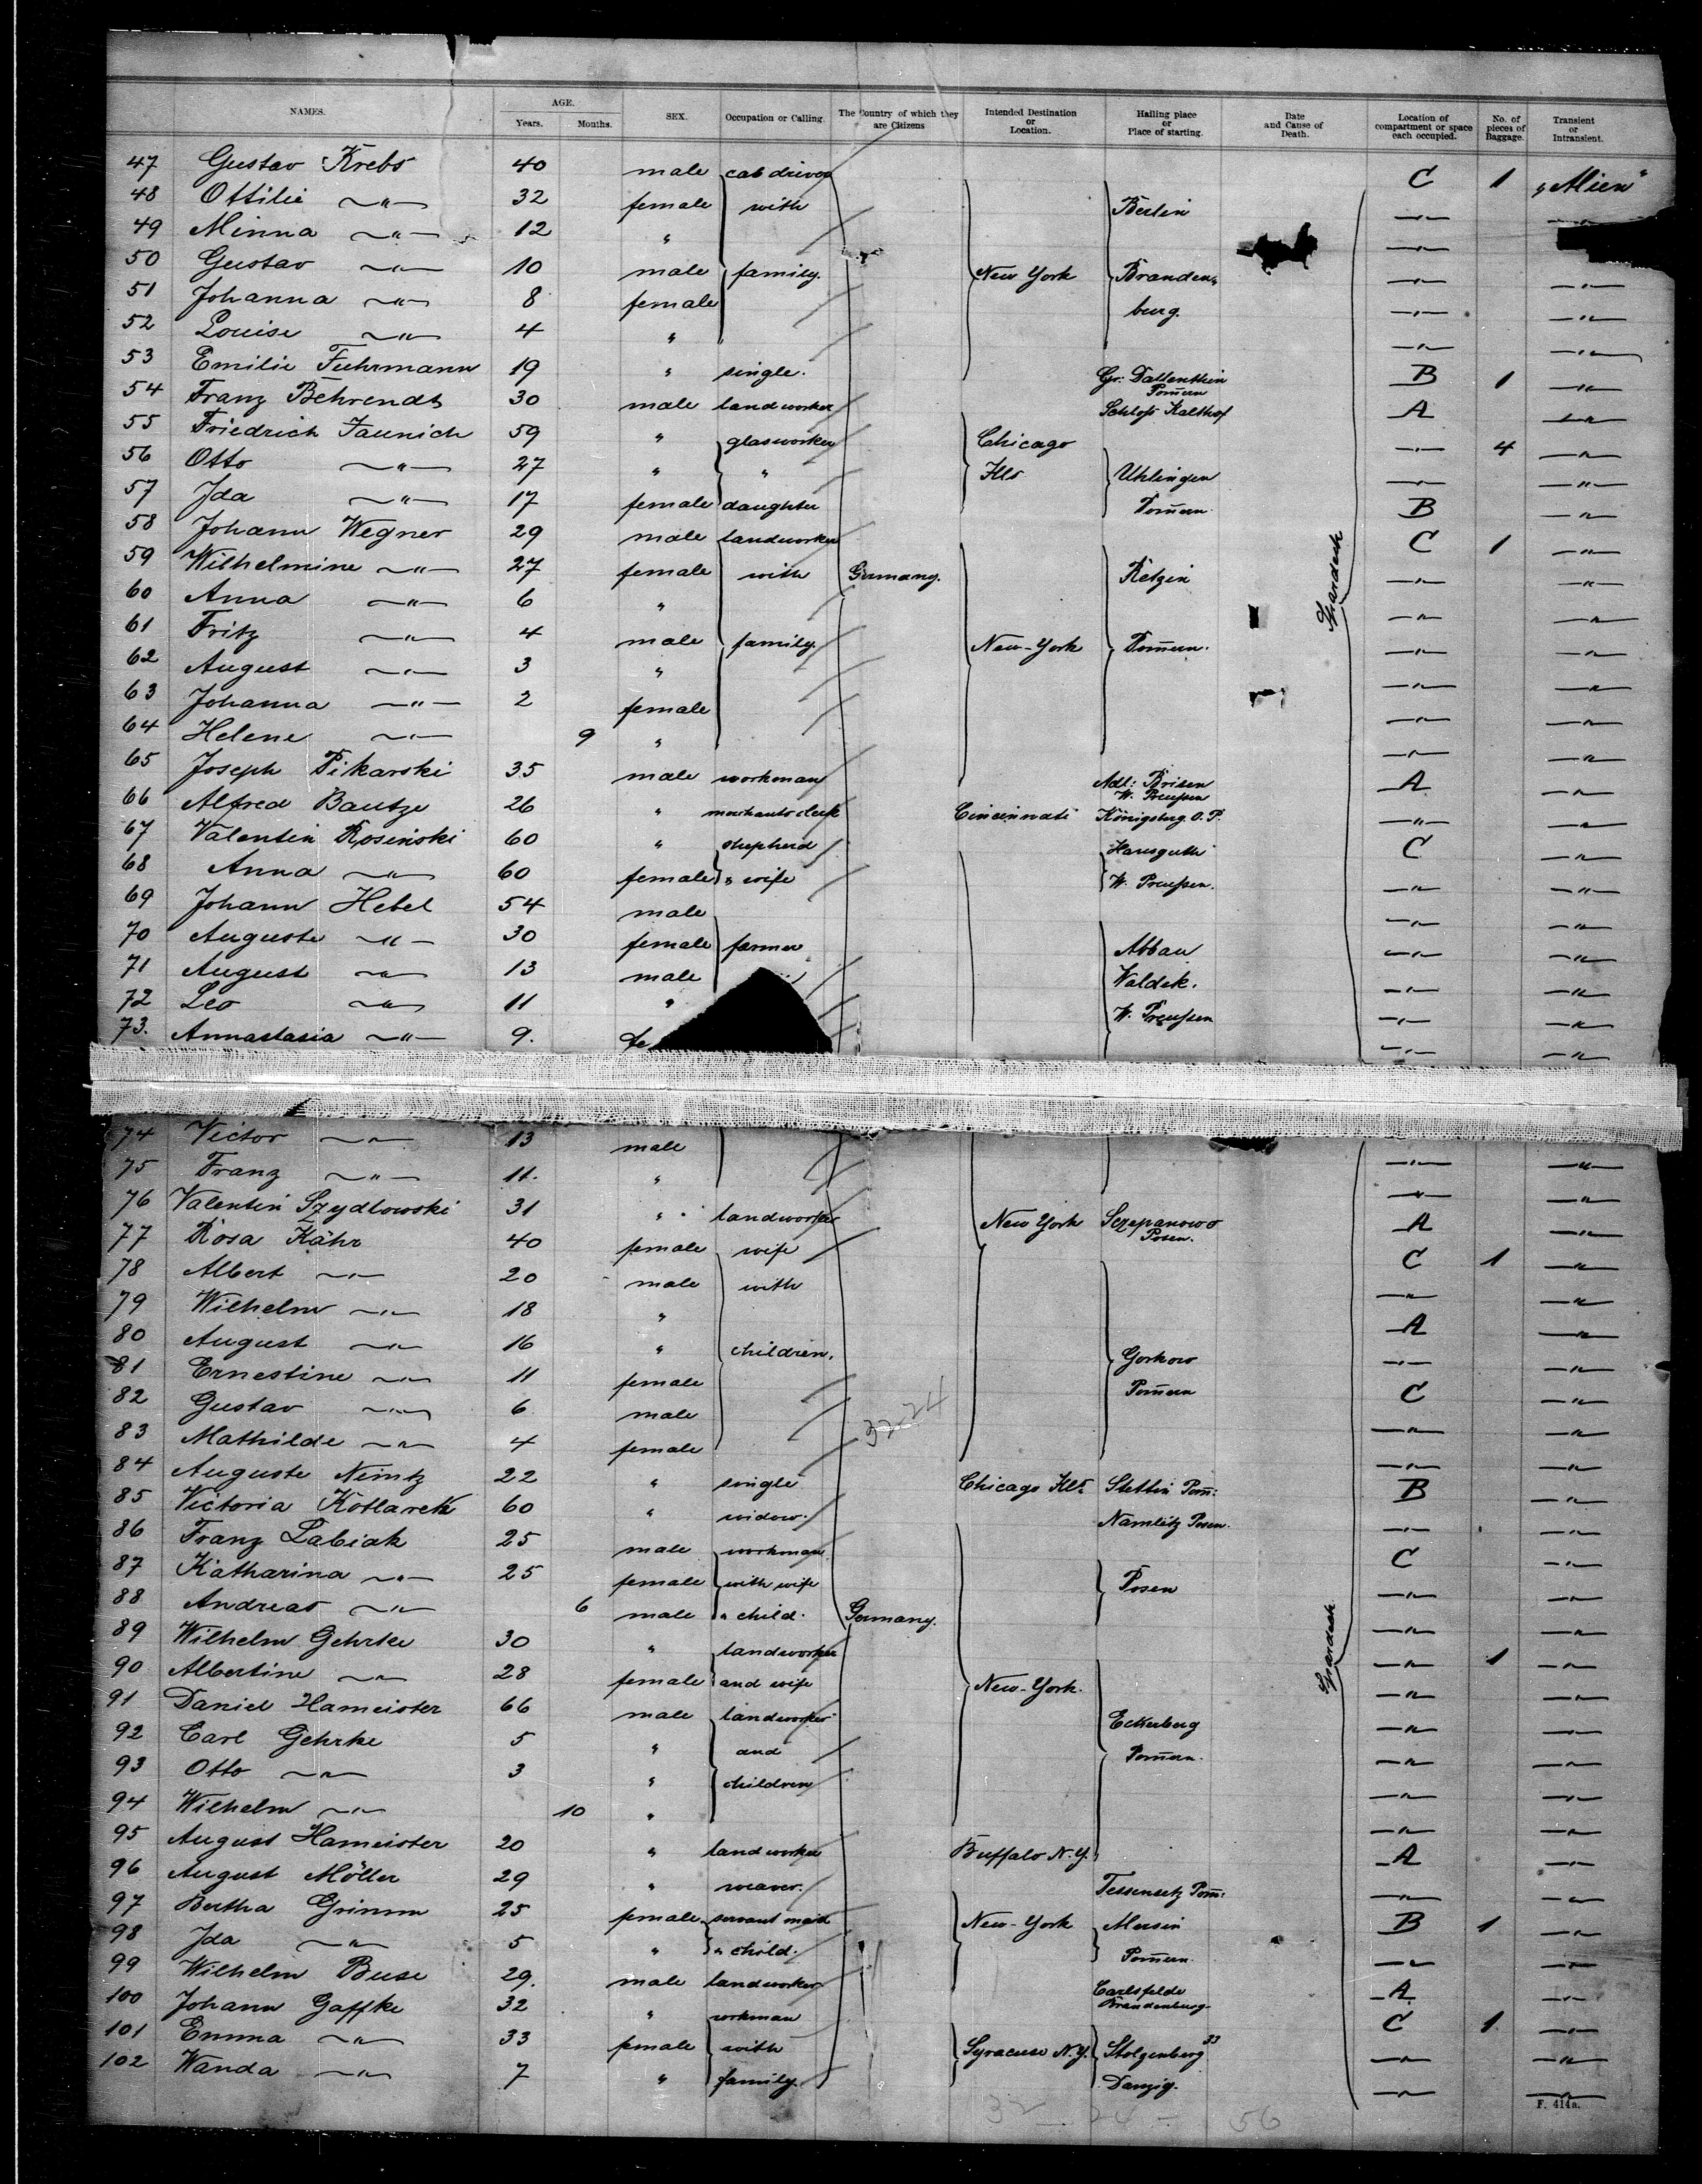 NAMES. AGE. Years. Months. SEX. Occupation or Calling. The Country of which they are Citizens Intended Destination or Location. Hailing place or Place of starting. Date and Cause of Death. Location of compartment or space each occupied. No. of pieces of Baggage. Transient or Intransient.
47 Gustav Krebs 40 male cab driver C 1 „Alien"
48 Ottilie —"— 32 female with Berlin —"— —"—
49 Minna —"— 12 " —"—
50 Gustav —"— 10 male family. New York Branden„ —"— —"—
51 Johanna —"— 8 female burg. —"— —"—
52 Louise —"— 4 " —"— —"—
53 Emilie Fuhrmann 19 " single. Gr: Dallenthin Pom̄ern B 1 —"—
54 Franz Behrendt 30 male landworker Schloß Kalthof A —"—
55 Friedrich Jaunich 59 " glasworker Chicago —"— 4 —"—
56 Otto —"— 27 " " Ills Uhlingen —"— —"—
57 Ida —"— 17 female daughter Pom̄ern B —"—
58 Johann Wegner 29 male landworker C 1 —"—
59 Wilhelmine —"— 27 female with Germany. Retzin —"— —"—
60 Anna —"— 6 " —"— —"—
61 Fritz —"— 4 male family. New-York Pom̄ern. —"— —"—
62 August —"— 3 " —"— —"—
63 Johanna —"— 2 female —"— —"—
64 Helene —"— 9 " —"— —"—
65 Joseph Pikarski 35 male workman Adl: Brisen W. Preußen A —"—
66 Alfred Bautze 26 " merchants clerk Cincinnati Königsberg O. P. —"— —"—
67 Valentin Rosinski 60 " shepherd Hansguth C —"—
68 Anna —"— 60 female " wife W. Preußen. —"— —"—
69 Johann Hebel 54 male —"— —"—
70 Auguste —"— 30 female farmer Abbau —"— —"—
71 August —"— 13 male Waldek. —"— —"—
72 Leo —"— 11 " W. Preußen —"— —"—
73. Annastasia —"— 9. fe —"— —"—
74 Victor —"— 13 male —"— —"—
75 Franz —"— 11. " —"— —"—
76 Valentin Szydlowski 31 " landworker New York Sczepanowo Posen. A —"—
77 Rosa Kähr 40 female wife C 1 —"—
78 Albert —"— 20 male with —"— —"—
79 Wilhelm —"— 18 " A —"—
80 August —"— 16 " children. Gorkow —"— —"—
81 Ernestine —"— 11 female Pom̄ern C —"—
82 Gustav —"— 6 male —"— —"—
83 Mathilde —"— 4 female —"— —"—
84 Auguste Nimtz 22 " single Chicago Ills. Stettin Pom̄: B —"—
85 Victoria Kotlarek 60 " widow. Namlitz Posen. —"— —"—
86 Franz Labiak 25 male workman C —"—
87 Katharina —"— 25 female with wife Posen —"— —"—
88 Andreas —"— 6 male " child. Germany. —"— —"—
89 Wilhelm Gehrke 30 " landworker —"— 1 —"—
90 Albertine —"— 28 female and wife New-York. —"— —"—
91 Daniel Hameister 66 male landworker Eckerberg —"— —"—
92 Carl Gehrke 5 " and Pom̄ern. —"— —"—
93 Otto —"— 3 " children —"— —"—
94 Wilhelm —"— 10 " —"— —"—
95 August Hameister 20 " landworker Buffalo N.Y. A —"—
96 August Möller 29 " weaver. Tessensetz Pom̄: —"— —"—
97 Bertha Grimm 25 female servant maid New-York Mersin B 1 —"—
98 Ida —"— 5 " " child. Pom̄ern. —"— —"—
99 Wilhelm Buse 29. male landworker Carlsfelde Brandenburg. A —"—
100 Johann Gaffke 32 " workman C 1 —"—
101 Emma —"— 33 female with Syracuse N.Y. Stolzenberg 33 —"— —"—
102 Wanda —"— 7 " family. Danzig. —"— —"—
32 - 24 - 56
F. 414a.